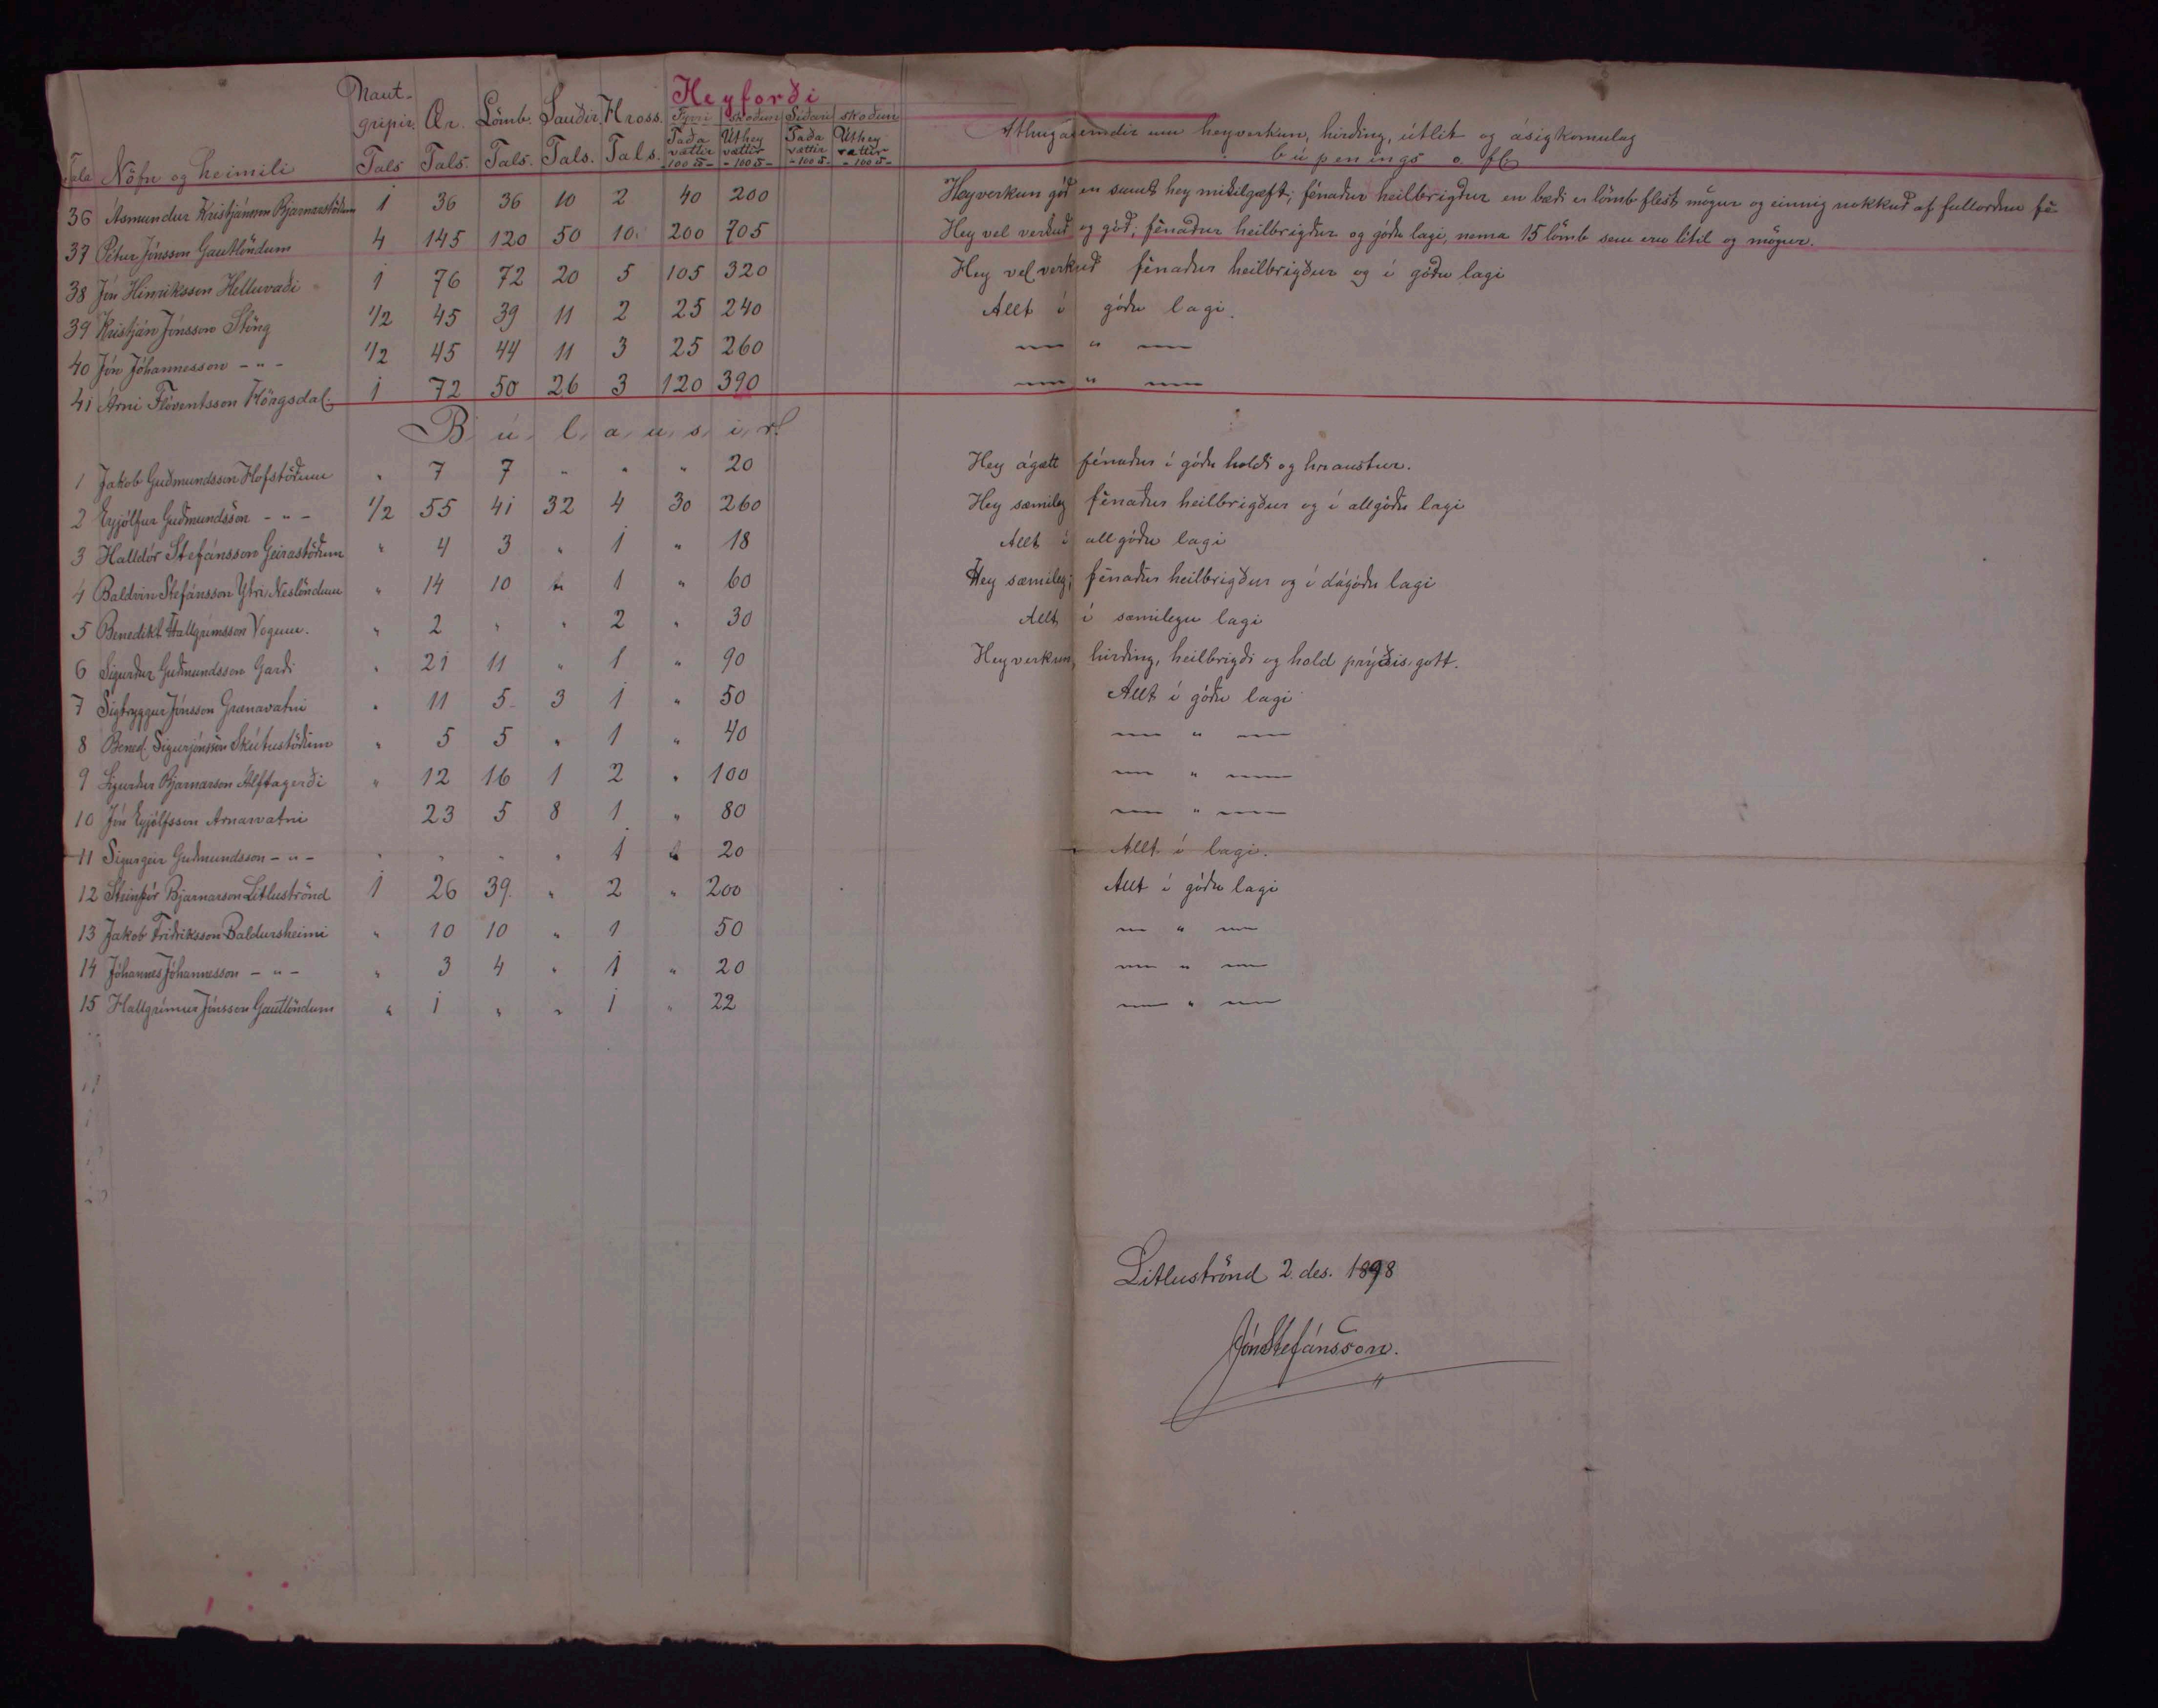 Heyforði
Naut-
gripir. Ær. Lömb. Sauðir. Hross. Fyrri skoðun Síðari skoðun
Taða Úthey Taða Úthey
vættir vættir vættir vættir
Tala Nöfn og heimili Tals Tals. Tals. Tals. Tals. 100 ℔ - 100 ℔ - - 100 ℔ - - 100 ℔ -
Athugasemdir um heyverkun, hirðing, útlit og ásigkomulag
búpenings o. fl.
36 Ásmundur Kristjánsson Bjarnastöðum 1 36 36 10 2 40 200 Heyverkun góð en sumt hey miðilgæft; fénaður heilbrigður en bæði er lömb flest mögur og einnig nokkuð af fullorðnu fé
37 Pétur Jónsson Gautlöndum 4 145 120 50 10. 200 705 Hey vel verkuð og góð; fénaður heilbrigður og góðu lagi, nema 15 lömb sem eru lítil og mögur.
38 Jón Hinriksson Helluvaði 1 76 72 20 5 105 320 Hey vel verkuð fénaður heilbrigður og í góðu lagi
39 Kristján Jónsson Stöng 1/2 45 39 11 2 25 240 Allt í góðu lagi.
40 Jón Jóhannesson - " - 1/2 45 44 11 3 25 260 — " —
41 Árni Flóventsson Hörgsdal. 1 72 50 26 3 120 390 — " —
Búlausir.
1 Jakob Guðmundsson Hofstöðum " 7 7 " " " 20 Hey ágætt fénaður í góðu holdi og hraustur.
2 Eyjólfur Guðmundsson - " - 1/2 55 41 32 4 30 260 Hey sæmileg fénaður heilbrigður og í allgóðu lagi
3 Halldór Stefánsson Geirastöðum " 4 3 " 1 " 18 Allt í allgóðu lagi
4 Baldvin Stefánsson Ytri Neslöndum " 14 10 " 1 " 60 Hey sæmileg; fénaður heilbrigður og í dágóðu lagi
5 Benedikt Hallgrímsson Vogum. " 2 " " 2 " 30 Allt í sæmilegu lagi
6 Sigurður Guðmundsson Garði " 21 11 " 1 " 90 Heyverkun, hirðing, heilbrigði og hold prýðis gott.
7 Sigtryggur Jónsson Grænavatni " 11 5 3 1 " 50 Allt í góðu lagi
8 Bened. Sigurjónsson Skútustöðum " 5 5 " 1 " 40 — " —
9 Sigurður Bjarnarson Álftagerði " 12 16 1 2 " 100 — " —
10 Jón Eyjólfsson Arnarvatni 23 5 8 1 " 80 — " —
11 Sigurgeir Guðmundsson - " - " " " " 1 " 20 Allt í lagi.
12 Steinþór Bjarnarson Litluströnd 1 26 39. " 2 " 200 Allt í góðu lagi
13 Jakob Friðriksson Baldursheimi " 10 10 " 1 50 — " —
14 Jóhannes Jóhannesson - " - " 3 4 " 1 " 20 — " —
15 Hallgrímur Jónsson Gautlöndum " 1 " " 1 " 22 — " —
Litluströnd 2. des. 1898
Jón Stefánsson.